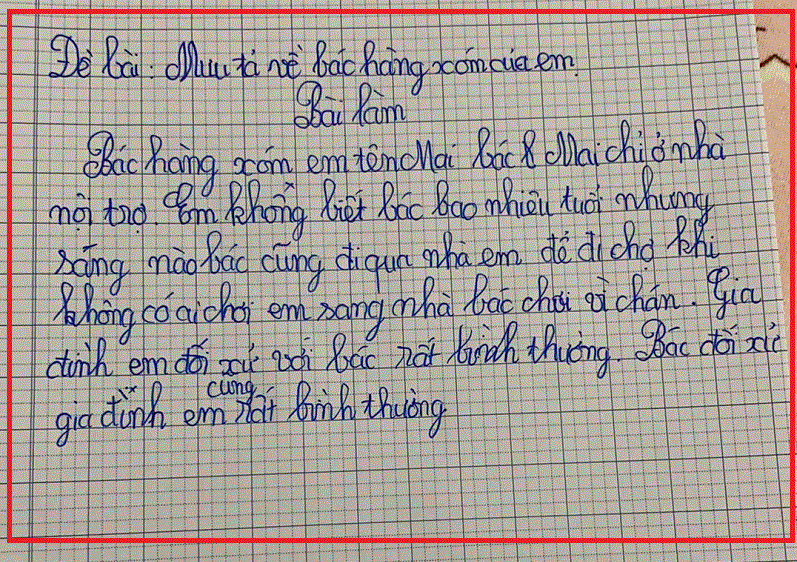 Đề bài: Miêu tả về bác hàng xóm của em.
Bài làm
Bác hàng xóm em tên Mai bác Mai chỉ ở nhà
nội trợ. Em không biết bác bao nhiêu tuổi nhưng
sáng nào bác cũng đi qua nhà em để đi chợ khi
không có ai chơi em sang nhà bác chơi vì chán. Gia
đình em đối xử với bác rất bình thường. Bác đối xử
gia đình em cũng rất bình thường